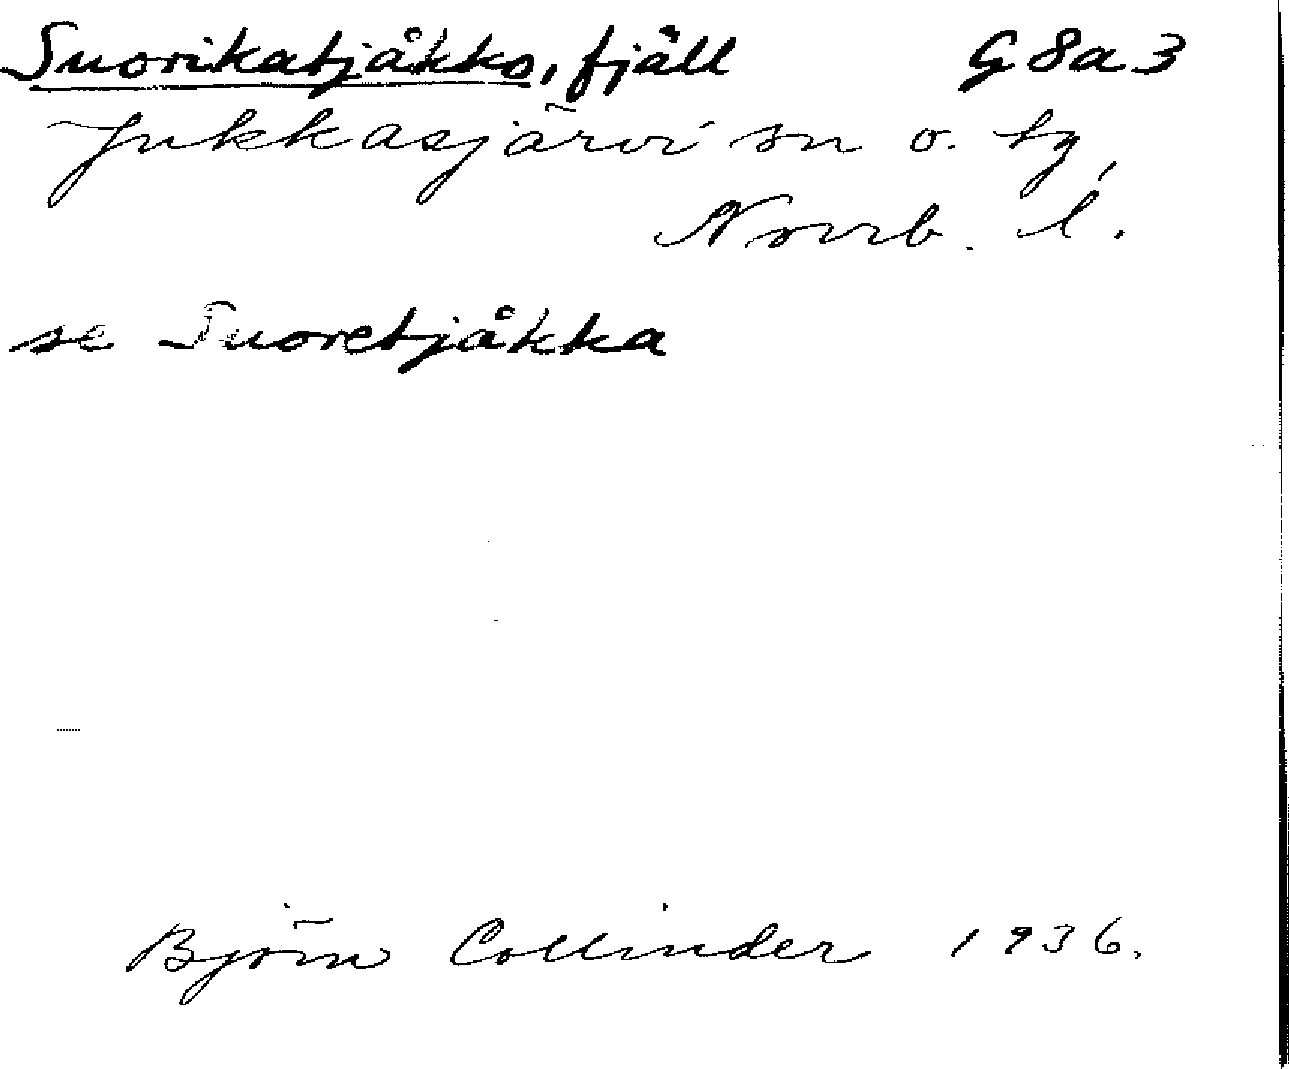 Suorikatjåkko, fjäll G 8a 3
Jukkasjärvi sn o. tg,
Norrb. l.
se Suoretjåkka
Björn Collinder 1936.